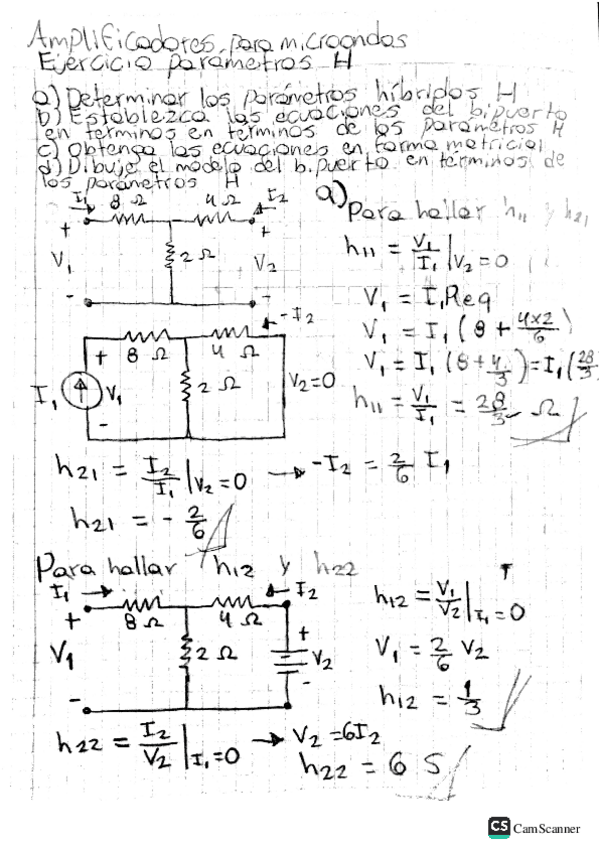 Amplificadores para microondas
Ejercicio parametros H
a) Determinar los parámetros híbridos H
b) Establezca las ecuaciones del bipuerto
en terminos en terminos de los parametros H
c) Obtenga las ecuaciones en forma matricial
d) Dibuje el modelo del bipuerto en términos de
los parámetros H
I1 8 Ω 4 Ω I2
+ +
V1 2 Ω V2
- -
a) Para hallar h11 y h21
h11 = V1/I1 |V2=0
V1 = I1 Req
V1 = I1 (8 + 4x2/6)
V1 = I1 (8+4/3) = I1 (28/3
h11 = V1/I1 = 28/3 Ω
-I2
+ 8 Ω 4 Ω
I1 V1 2 Ω V2=0
-
h21 = I2/I1 |V2=0 → -I2 = 2/6 I1
h21 = - 2/6
Para hallar h12 y h22
I1 I2
+ 8 Ω 4 Ω +
V1 2 Ω V2
- -
h12 = V1/V2 |I1=0
V1 = 2/6 V2
h12 = 1/3
h22 = I2/V2 |I1=0 → V2=6I2
h22 = 6 S
CS CamScanner